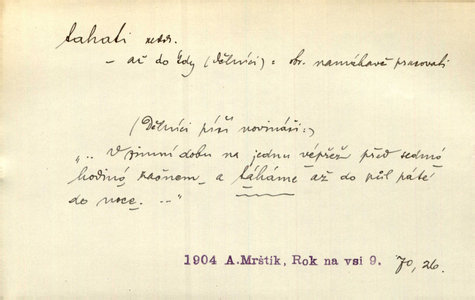 tahati
– až do (dělníci): obr. namáhavě pracovati
(Dělníci píší novináři:)
„.. V zimní dobu na jednu vépřež před sedmó
hodinó začnem a táháme až do půl páté
do noce. .."
1904 A.Mrštík, Rok na vsi 9. 70, 26.